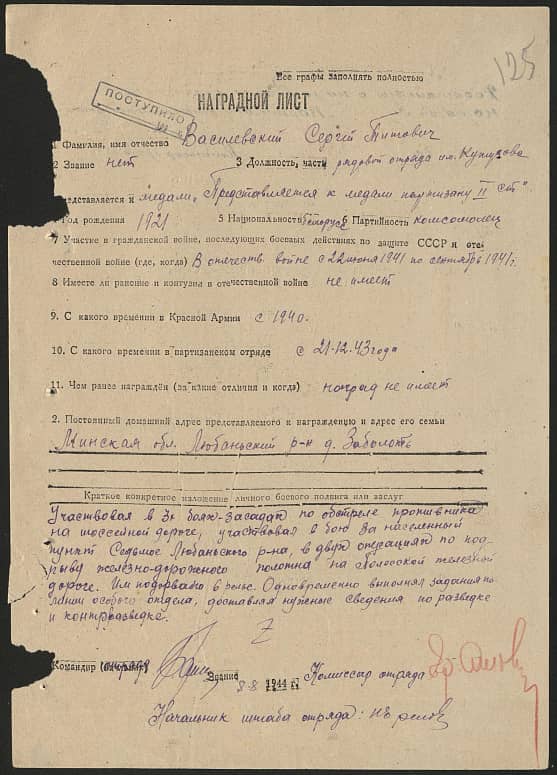 125
Все графы заполнять полностью
ПОСТУПИЛО
НАГРАДНОЙ ЛИСТ
1 Фамилия, имя отчество Василевский Сергій Титович
2 Звание нет 3 Должность, часть рядовой отряда им. Кутузова
представляется к медали „Представляется к медали партизану II ст"
Год рождения 1921 5 Национальность белорус 6 Партийность комсомолец
7 Участие в гражданской войне, последующих боевых действиях по защите СССР и оте-
чественной войне (где, когда) В отечеств войне с 22 июня 1941 по сентябрь 1941 г.
8 Имеете ли ранение и контузии в отечественной войне не имеет
9. С какого времении в Красной Армии с 1940.
10. С какого времении в партизанском отряде с 21-12-43 года
11. Чем ранее награждён (за какие отличия и когда) наград не имеет
2. Постоянный домашний адрес представляемого к награждению и адрес его семьи
Минская обл. Любаньский р-н д. Заболоть
Краткое конкретное изложение личного боевого подвига или заслуг
Участвовал в 3х боях-засадах по обстреле противника
на шоссейной дороге, участвовал в бою за населенный
пункт Седьмое Любаньского р-на, в двух операциях по под-
рыву железно-дорожного полотна на Полесской железной
дороге. Им подорвано 6 рельс. Одновременно выполнял задания по
линии особого отдела, доставлял нужные сведения по разведке
и контрразведке.
Командир (начальник) отряда Звание Комиссар отряда
8-8 1944 г.
Начальник штаба отряда: